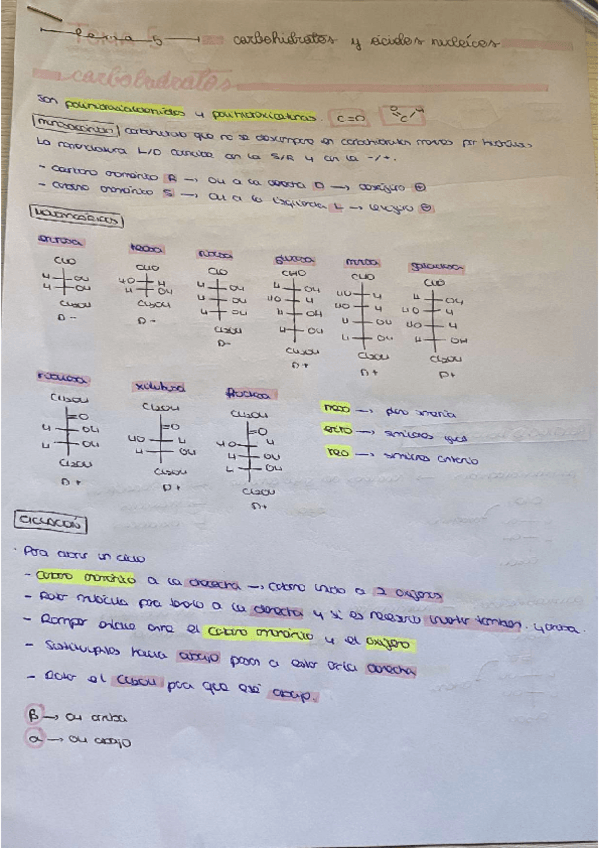 Tema 5 carbohidratos y ácidos nucleicos
carbohidratos
Son polihidroxialdehidos y polihidroxicetonas. C=O
monosacárido carbohidrato que no se descompone en carbohidratos menores por hidrólisis.
La nomenclatura L/D coincide con la S/R y con la -/+.
- carbono anomérico R → OH a la derecha D → dextrógiro +
- carbono anomérico S → OH a la izquierda L → levógiro
monosacáridos
eritrosa treosa ribosa glucosa manosa galactosa
CHO CHO CHO CHO CHO CHO
H OH HO H H OH H OH HO H H OH
H OH H OH H OH HO H HO H HO H
CH2OH CH2OH H OH H OH H OH HO H
D- D- CH2OH H OH H OH H OH
D- CH2OH CH2OH CH2OH
D+ D+ D+
ribulosa xilulosa fructosa
CH2OH CH2OH CH2OH
=O =O =O
H OH HO H HO H
H OH H OH H OH
CH2OH CH2OH H OH
D+ D+ CH2OH
D+
meso → plano simetría
eritro → similares igual
treo → similares contrario
CICLACIÓN
· Para abrir un ciclo
- carbono anomérico a la derecha → carbono unido a 2 oxígenos
- Rotar molécula para tenerlo a la derecha y si es necesario invertir también
- Romper enlace entre el carbono anomérico y el oxígeno
- Sustituyentes hacia abajo pasan a estar hacia derecha
- Rotar el CH2OH para que esté abajo.
β → OH arriba
α → OH abajo